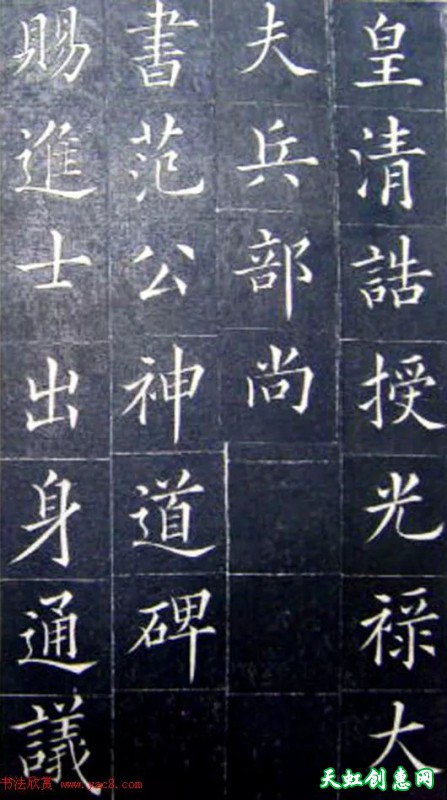 皇清誥授光禄大
夫兵部尚
書范公神道碑
賜進士出身通議
书法欣赏 www.yac8.com
天虹创惠网